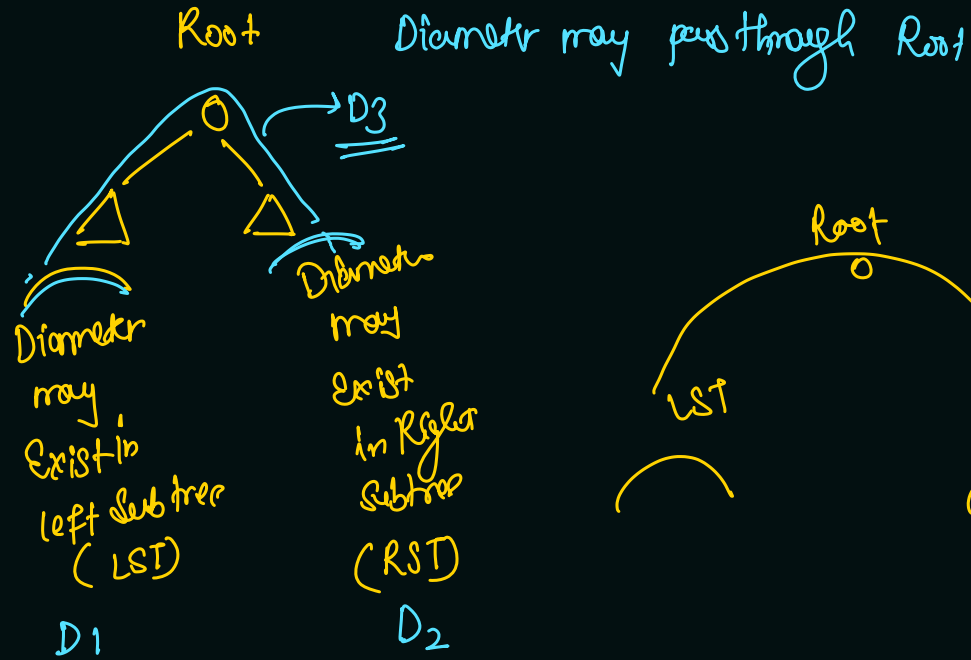 Root
Diameter may pass through Root
D3
Diameter
may
Exist in
left Subtree
(LST)
D1
Diameter
may
Exist
in Right
subtree
(RST)
D2
Root
LST